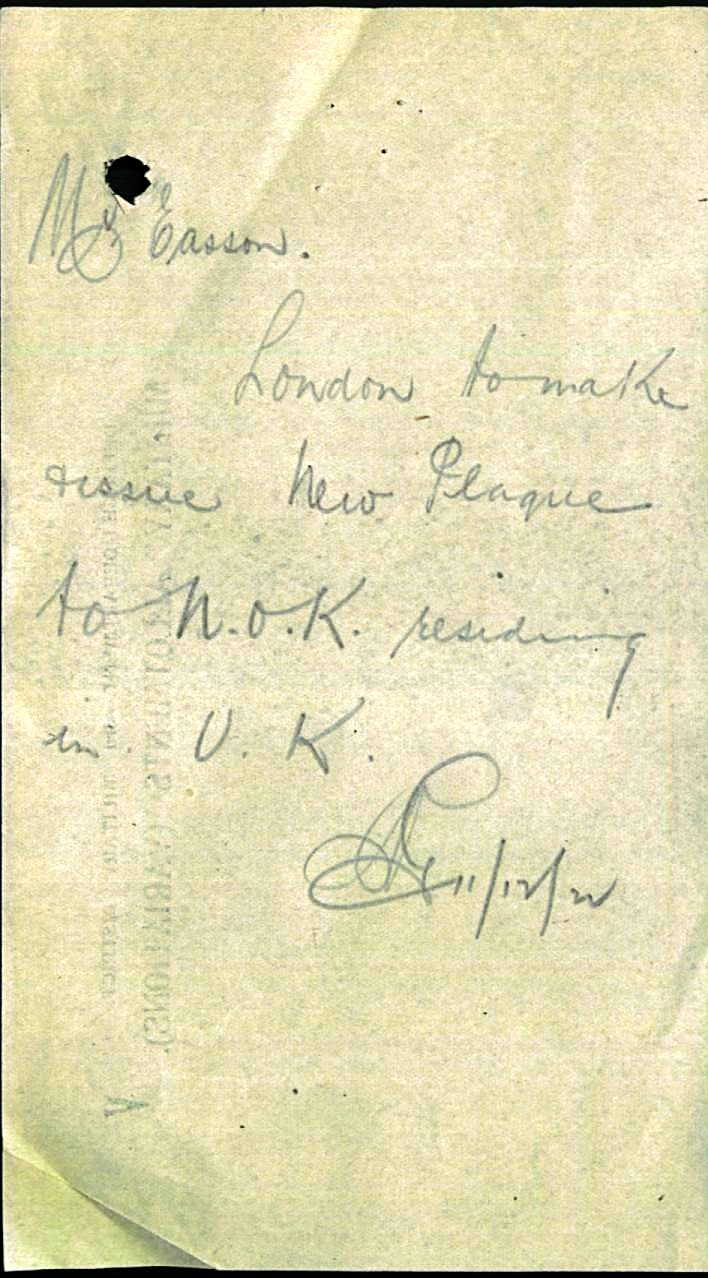 Mr Easson.
London to make
& issue New Plaque
to N.O.K. residing
in U.K.
11/12/22